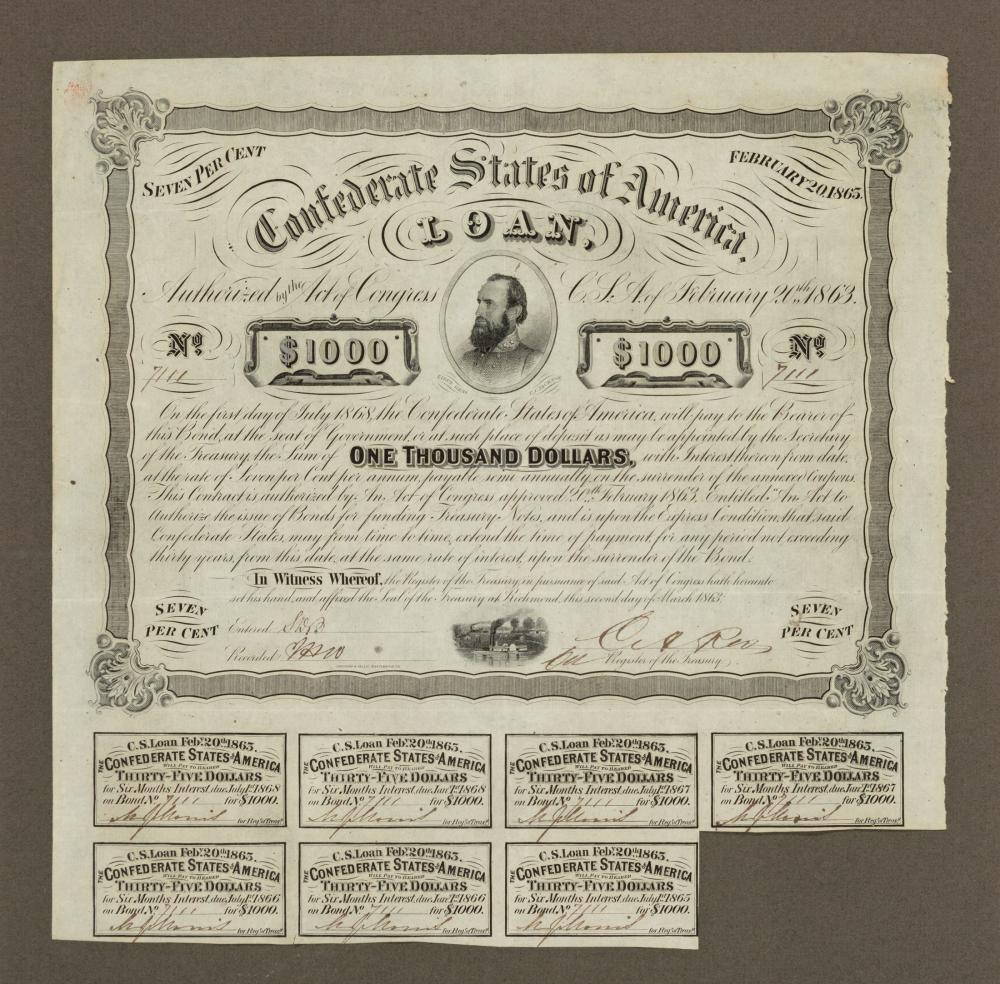 SEVEN PER CENT
FEBRUARY 20, 1863.
Confederate States of America,
LOAN,
Authorized by the Act of Congress C.S.A. of February 20th, 1863.
No. $1000 $1000 No.
7111 7111
On the first day of July 1868, the Confederate States of America, will pay to the Bearer of
this Bond, at the seat of Government, or at such place of deposit as may be appointed by the Secretary
of the Treasury, the Sum of ONE THOUSAND DOLLARS, with Interest thereon from date,
at the rate of Seven per Cent per annum, payable semi annually, on the surrender of the annexed Coupons.
This Contract is authorized by An Act of Congress approved 20th February 1863, Entitled "An Act to
Authorize the issue of Bonds for funding Treasury Notes, and is upon the Express Condition, that said
Confederate States, may from time to time, extend the time of payment, for any period not exceeding
thirty years, from this date, at the same rate of interest, upon the surrender of the Bond.
In Witness Whereof, the Register of the Treasury, in pursuance of said Act of Congress hath hereunto
set his hand, and affixed the Seal of the Treasury at Richmond, this second day of March 1863.
SEVEN PER CENT
Entered
Recorded
Register of the Treasury
SEVEN PER CENT
C.S. Loan Feby. 20th 1863.
THE CONFEDERATE STATES OF AMERICA
WILL PAY TO BEARER
THIRTY-FIVE DOLLARS
for Six Months Interest, due July 1st 1868
on Bond No 7111 for $1000.
for Reg'r of Treasy.
C.S. Loan Feby. 20th 1863.
THE CONFEDERATE STATES OF AMERICA
WILL PAY TO BEARER
THIRTY-FIVE DOLLARS
for Six Months Interest, due Jany 1st 1868
on Bond No 7111 for $1000.
for Reg'r of Treasy.
C.S. Loan Feby. 20th 1863.
THE CONFEDERATE STATES OF AMERICA
WILL PAY TO BEARER
THIRTY-FIVE DOLLARS
for Six Months Interest, due July 1st 1867
on Bond No 7111 for $1000.
for Reg'r of Treasy.
C.S. Loan Feby. 20th 1863.
THE CONFEDERATE STATES OF AMERICA
WILL PAY TO BEARER
THIRTY-FIVE DOLLARS
for Six Months Interest, due Jany 1st 1867
on Bond No 7111 for $1000.
for Reg'r of Treasy.
C.S. Loan Feby. 20th 1863.
THE CONFEDERATE STATES OF AMERICA
WILL PAY TO BEARER
THIRTY-FIVE DOLLARS
for Six Months Interest, due July 1st 1866
on Bond No 7111 for $1000.
for Reg'r of Treasy.
C.S. Loan Feby. 20th 1863.
THE CONFEDERATE STATES OF AMERICA
WILL PAY TO BEARER
THIRTY-FIVE DOLLARS
for Six Months Interest, due Jany 1st 1866
on Bond No 7111 for $1000.
for Reg'r of Treasy.
C.S. Loan Feby. 20th 1863.
THE CONFEDERATE STATES OF AMERICA
WILL PAY TO BEARER
THIRTY-FIVE DOLLARS
for Six Months Interest, due July 1st 1865
on Bond No 7111 for $1000.
for Reg'r of Treasy.